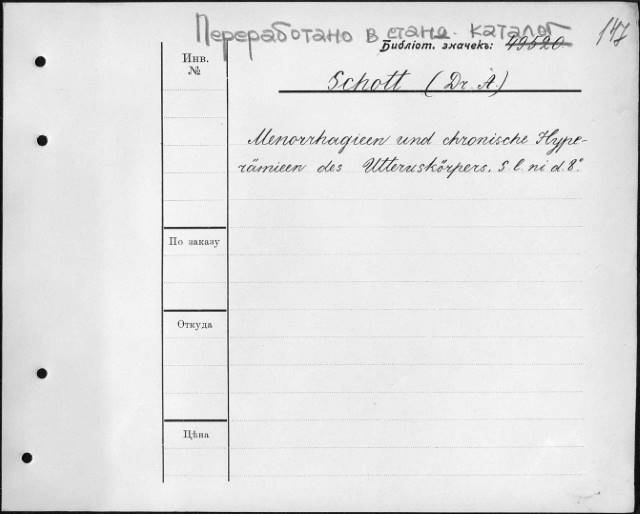 Переработано в станд. каталог 147
Библіот. значекъ: 49520
Инв.
№
Schott (Dr. A.)
Menorrhagieen und chronische Hype-
rämieen des Utteruskörpers. S. l. ni d. 8°.
По заказу
Откуда
Цѣна